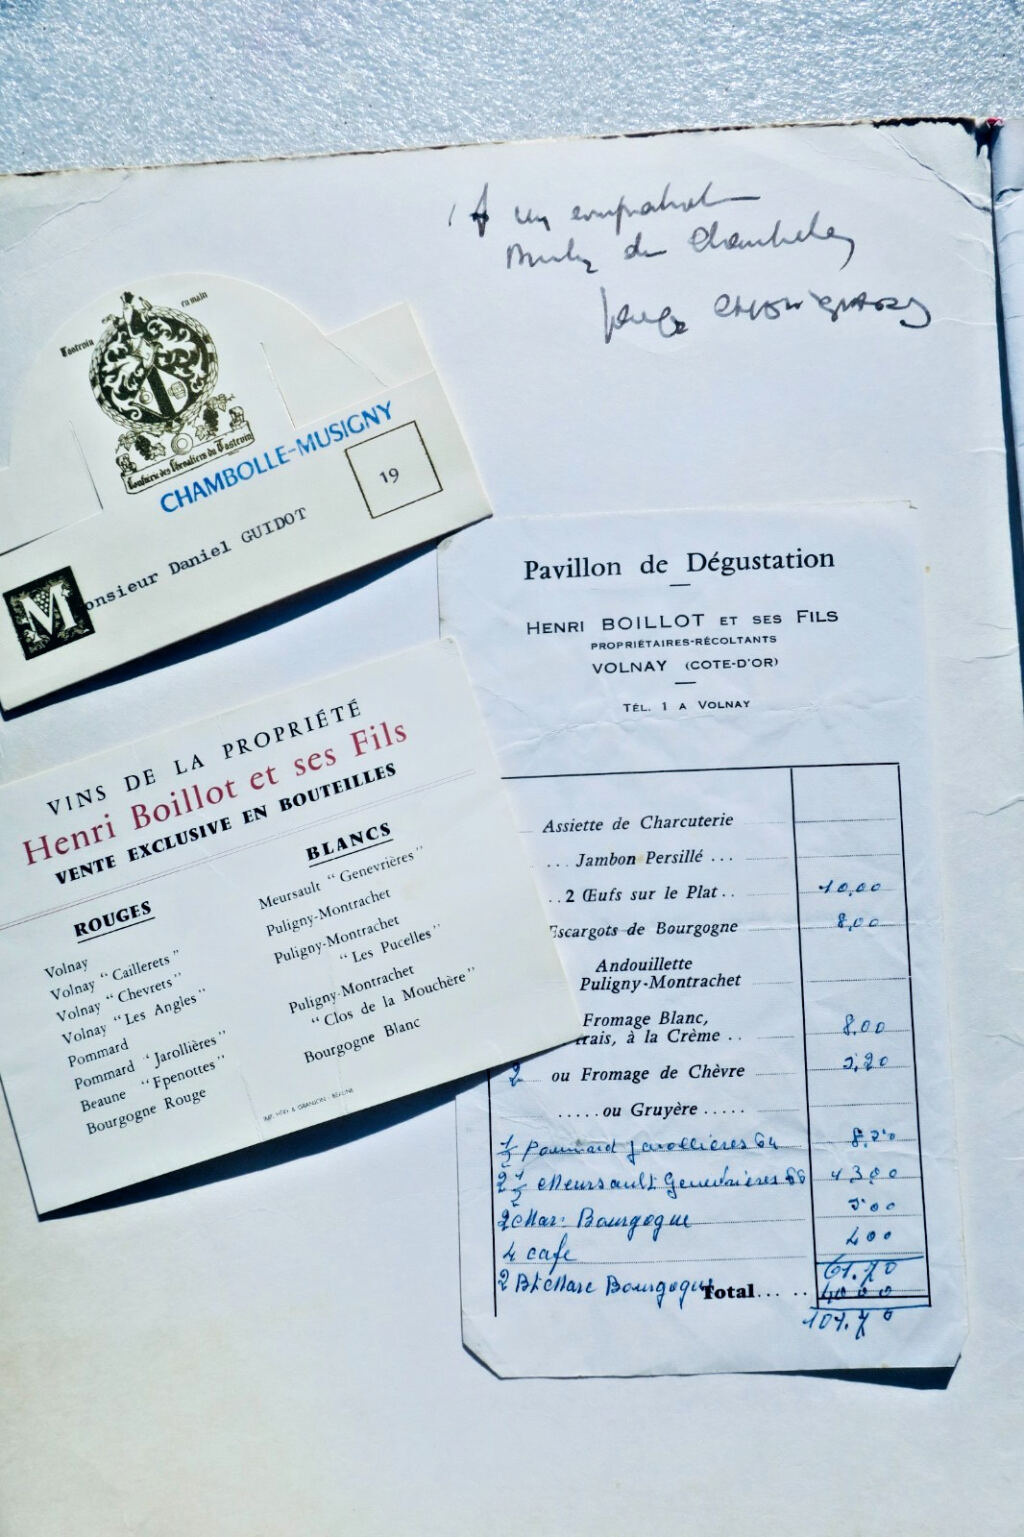 Tastevin
en main
Confrérie des Chevaliers du Tastevin
CHAMBOLLE-MUSIGNY
19
Monsieur Daniel GUIDOT
VINS DE LA PROPRIÉTÉ
Henri Boillot et ses Fils
VENTE EXCLUSIVE EN BOUTEILLES
ROUGES
Volnay
Volnay "Caillerets"
Volnay "Chevrets"
Volnay "Les Angles"
Pommard
Pommard "Jarollières"
Beaune "Epenottes"
Bourgogne Rouge
BLANCS
Meursault "Genevrières"
Puligny-Montrachet
Puligny-Montrachet
"Les Pucelles"
Puligny-Montrachet
"Clos de la Mouchère"
Bourgogne Blanc
Pavillon de Dégustation
HENRI BOILLOT ET SES FILS
PROPRIÉTAIRES-RÉCOLTANTS
VOLNAY (COTE-D'OR)
TÉL. 1 A VOLNAY
Assiette de Charcuterie
... Jambon Persillé ...
..2 Œufs sur le Plat.. 10,00
Escargots de Bourgogne 8,00
Andouillette
Puligny-Montrachet
Fromage Blanc,
rais, à la Crème .. 8,00
2 ou Fromage de Chèvre
.....ou Gruyère.....
1/2 Pommard Jarollières 64
2 1/2 Meursault Genevrières 66
2 Marc Bourgogne
4 café 400
2 Bt Marc Bourgogne
Total... .. 61.70